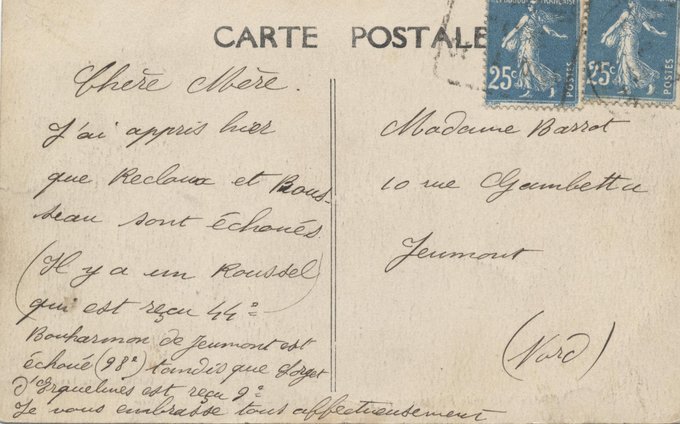 CARTE POSTALE
RÉPUBLIQUE FRANÇAISE
25c
POSTES
25c
POSTES
Chère Mère.
J'ai appris hier
que Recloux et Rous-
seau sont échoués
(Il y a un Roussel
qui est reçu 44e)
Bouharmon de Jeumont est
échoué (98e) tandis que Sorget
d'Erquelines est reçu 9e
Je vous embrasse tous affectueusement
Madame Barrot
10 rue Gambetta
Jeumont
(Nord)